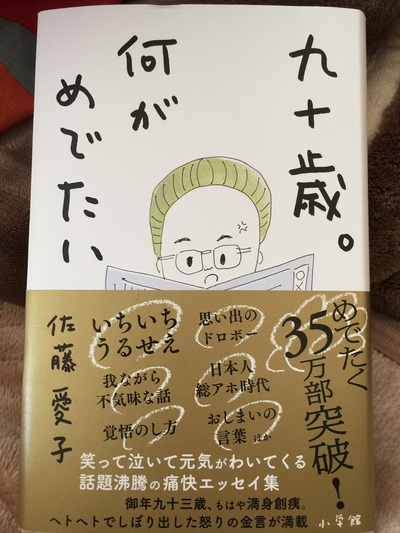 九十歳。
何が
めでたい
佐藤愛子
めでたく
35万部突破!
思い出の
ドロボー
いちいち
うるせえ
日本人
総アホ時代
我ながら
不気味な話
おしまいの
言葉 ほか
覚悟のし方
笑って泣いて元気がわいてくる
話題沸騰の痛快エッセイ集
御年九十三歳、もはや満身創痍。
ヘトヘトでしぼり出した怒りの金言が満載
小学館